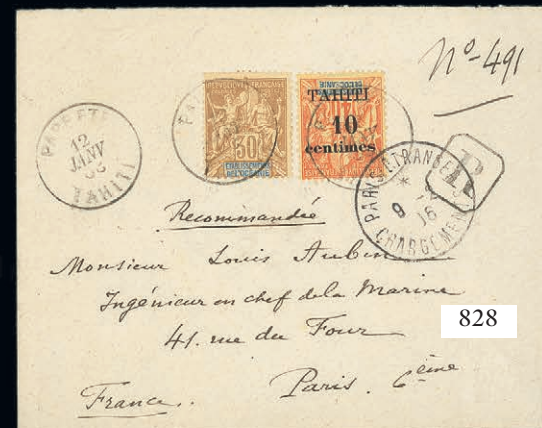 No- 491
PAPEETE
12
JANV
TAHITI
REPUBLIQUE FRANÇAISE
30
ETABLISSEMENTS
DE L'OCEANIE
TAHITI
10
centimes
R
PARIS ETRANGER
*
9
16
CHARGEMENT
Recommandée
Monsieur Louis Aubin
Ingénieur en chef de la Marine
41. rue du Four
Paris. 6ème
France.
828